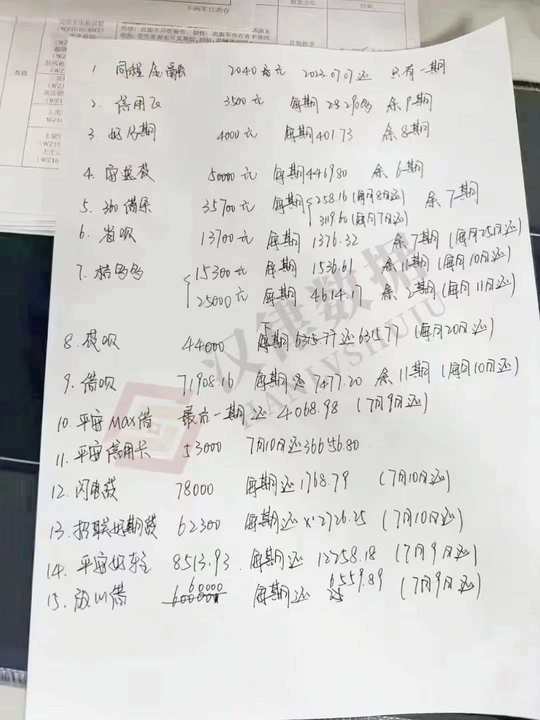 1 同程金融 2040元 2022.07.07还 只有一期
2. 信用飞 3500元 每期 余9期
3 好分期 4000元 每期401.73 余8期
4. 50000元 每期4469.80 余6期
5. 360借条 35700元 每期 258.16(每月8日还) 余7期
3119.60(每月7日还)
6. 省呗 13700元 每期 1376.32 余7期(每月25日还)
7. 15300元 每期 1536.61 余11期(每月10日还)
25000元 每期 4614.17 余2期(每月11日还)
8. 44000 每期6315.77还6315.77(每月20日还)
9. 借呗 71908.16 每期还7477.20 余11期(每月10日还)
10. 平安MAX借 最后一期还4068.98 (7月9日还)
11. 平安信用卡 53000 7月10日还36656.80
12. 闪电贷 78000 每期还1768.79 (7月10日还)
13. 招联好期贷 62300 每期还 2726.25 (7月10日还)
14. 平安好车主 8513.93 每期还 12758.18 (7月9日还)
15. 60000 每期还 6559.89 (7月9日还)
汉律数据
HANLVSHUJU